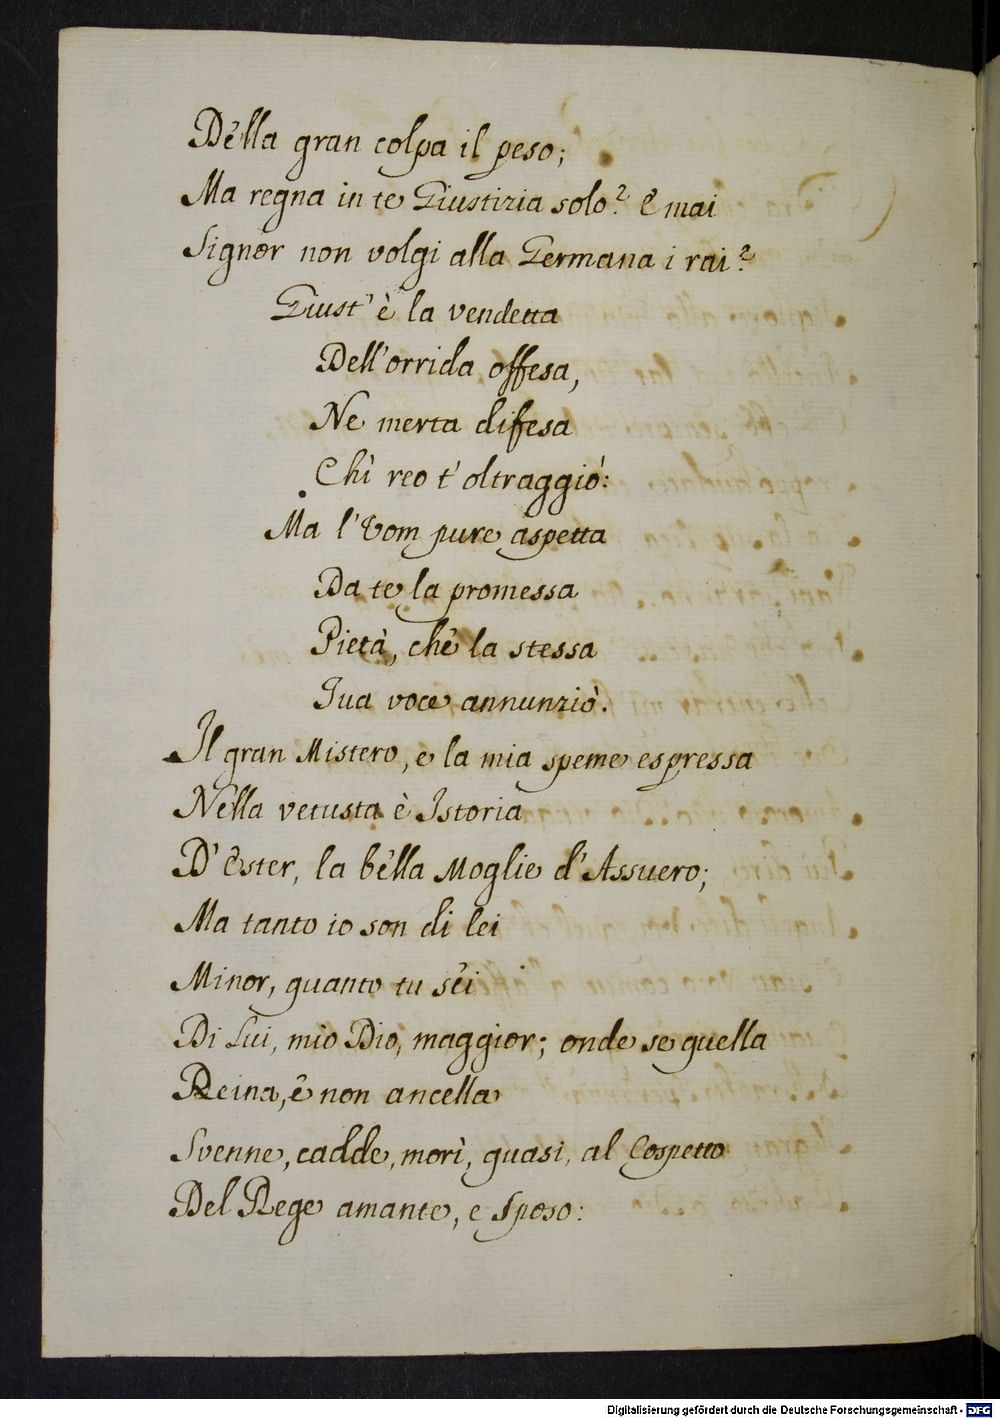 Della gran colpa il peso;
Ma regna in te Giustizia solo? E mai
Signor non volgi alla Germana i rai?
Giust' è la vendetta
Dell'orrida offesa,
Ne merta difesa
Chì reo t' oltraggiò:
Ma l'Uom pure aspetta
Da te la promessa
Pietà, chè la stessa
Tua voce annunziò.
Il gran Mistero, e la mia speme espressa
Nella vetusta è Istoria
D' Ester, la bella Moglie d' Assuero;
Ma tanto io son di lei
Minor, quanto tu sèi
Di Lui, mio Dio, maggior; onde se quella
Reina, è non ancella
Svenne, cadde, morì, quasi, al Cospetto
Del Rege amante, e Sposo:
Digitalisierung gefördert durch die Deutsche Forschungsgemeinschaft - DFG